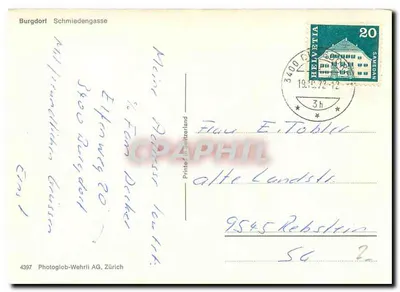 Burgdorf Schmiedengasse
Meine Adresse lautet:
℅ Fam. Decker
Elfenweg 20
3400 Burgdorf
Mit freundlichen Grüssen
Erna
4397 Photoglob-Wehrli AG, Zürich
Printed in Switzerland
HELVETIA
20
SAMEDAN
3400
19.10.72-12
3b
Frau E. Tobler
alte Landstr.
9545 Rebstein
SG
CPAPHIL